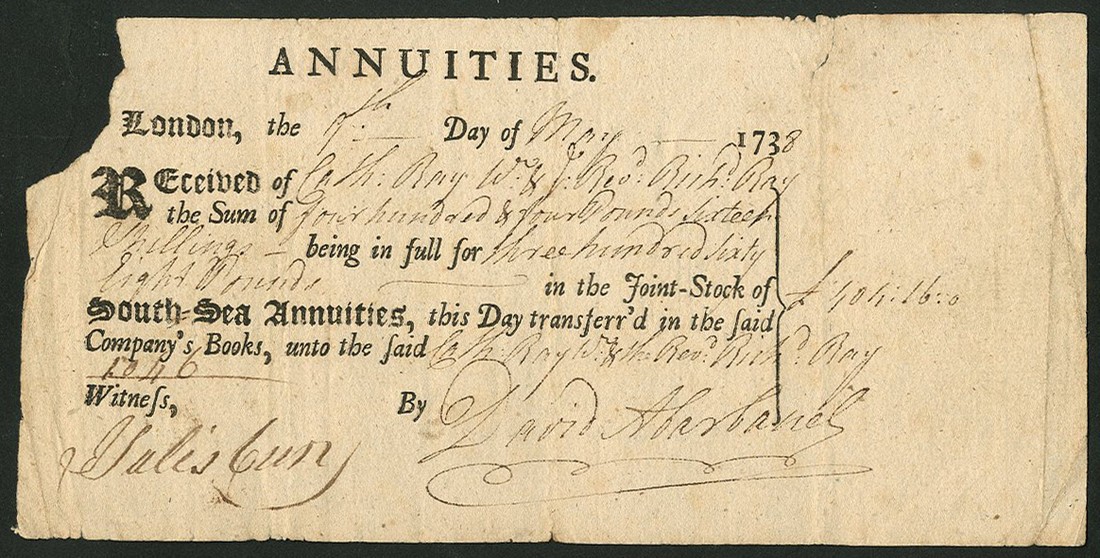 ANNUITIES.
London, the 9th Day of May 1738
REceived of Cath: Ray Wo. & ye. Revd. Richd. Ray
the Sum of four hundred & four Pounds Sixteen
Shillings being in full for three hundred sixty
Eight Pounds in the Joint-Stock of £404:16:0
South-Sea Annuities, this Day transferr'd in the ſaid
Company's Books, unto the ſaid Cath: Ray Wo. & the Revd. Richd. Ray
Witneſs, By David Abarbanel